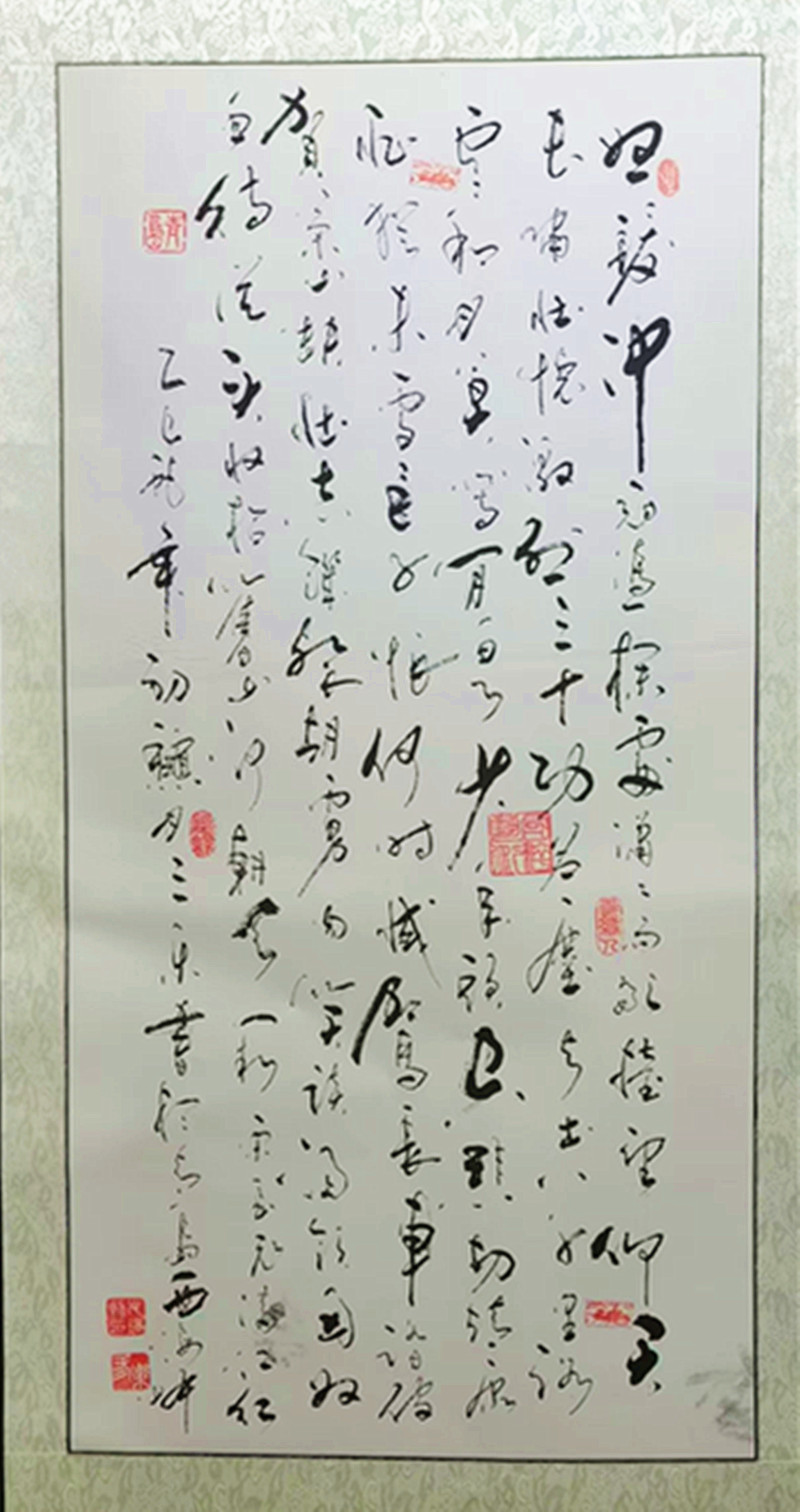 怒髮沖冠憑欄處瀟瀟雨歇擡望仰天
長嘯壯懷激烈三十功名塵與土八千里路
雲和月莫等閒白了少年切靖康
恥猶未雪臣子恨何時滅駕長車踏破
賀山缺壯志饑餐胡虜肉笑談渴飲匈奴
血待從頭收拾舊山河朝天宋岳飛滿江紅
乙巳年初月三書於青島西海岸
青島